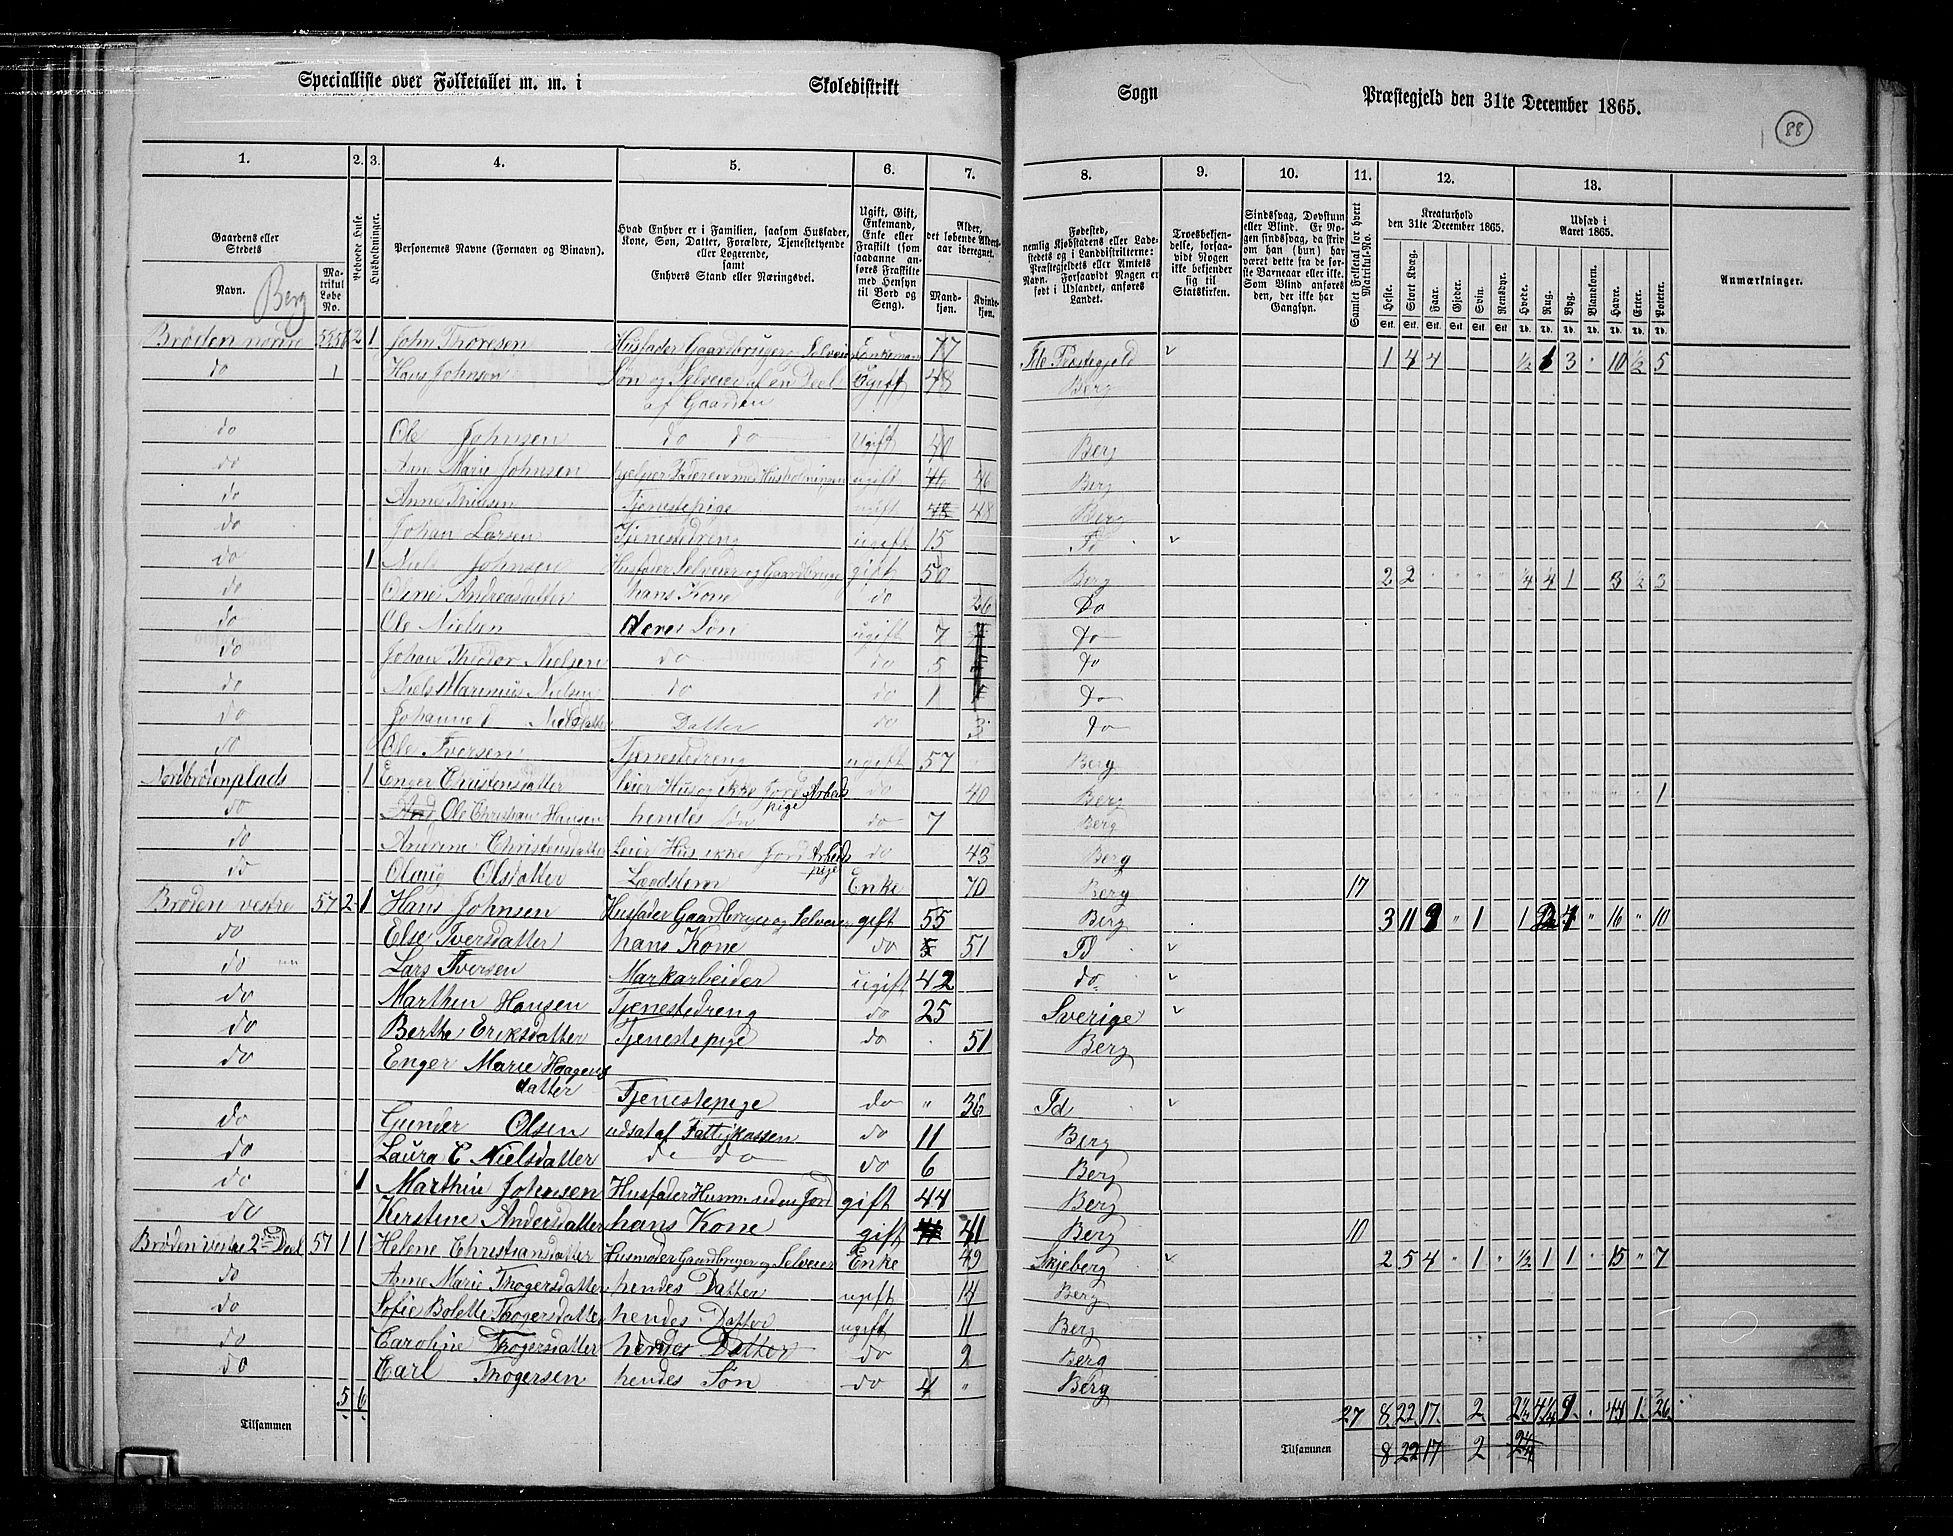 Specialliste over Folketallet m. m. i Skoledistrikt Sogn Præstegjeld den 31te December 1865.
88
1. 2. 3. 4. 5. 6. 7. 8. 9. 10. 11. 12. 13.
Gaardens eller Stedets
Navn. Berg
Matrikul Løbe No.
Beboede Huse.
Husholdninger.
Personernes Navne (Fornavn og Binavn).
Hvad Enhver er i Familien, saasom Husfader, Kone, Søn, Datter, Forældre, Tjenestetyende eller Logerende, samt Enhvers Stand eller Næringsvei.
Ugift, Gift, Enkemand, Enke eller Fraskilt (som saadanne anføres Fraskilte med Hensyn til Bord og Seng).
Alder, det løbende Aldersaar iberegnet.
Mandkjøn. Kvindekjøn.
Fødested, nemlig Kjøbstadens eller Ladestedets og i Landdistrikterne: Præstegjeldets eller Amtets Navn. Forsaavidt Nogen er født i Udlandet, anføres Landet.
Troesbekjendelse, forsaavidt Nogen ikke bekjender sig til Statskirken.
Sindssvag, Døvstum eller Blind. Er Nogen sindssvag, da skriv om han (hun) har været dette fra de første Barneaar eller ikke. Som Blind ansøres den, der ikke har Gangsyn.
Samlet Folketal for hvert Matrikul-No.
Kreaturhold den 31te December 1865.
Heste. Stort Kvæg. Faar. Gjeder. Svin. Rensdyr.
Udsæd i Aaret 1865.
Hvede. Rug. Byg. Blandkorn. Havre. Erter. Poteter.
Anmærkninger.
Brøden nordre 2 1 John Thoresen Husfader Gaardbruger Selveier Enkemand 77 Præstegjeld 1 4 4 ½ 1 3 10 ½ 5
do 1 Hans Johnsen Søn og Selveier af en Deel ugift 48 Berg
af Gaarden
do Ole Johnsen do do Ugift 40 Berg
do Ane Marie Johnsen ugift 46 Berg
do Anne Tjenestepige ugift 48 Berg
do Johan Larsen Tjenestedreng ugift 15 Id
do 1 Niels Johnsen Husfader Selveier og Gaardbruger gift 50 Berg 2 2 ¼ ¼ 1 3 ½ 3
do Oline Andreasdatter hans Kone do 26 Do
do Ole Nielsen deres Søn ugift 7 do
do Johan Nielsen do do 5 do
do Niels Marinus Nielsen do do 1 do
do Johanne Nielsdatter Datter do 3 do
do Ole Iversen Tjenestedreng ugift 57 Berg
Nordbrødenplads 1 Enger Christensdatter leier Hus og ikke Jord Arbeidspige do 40 Berg 1
do Ole Christian Hansen hendes Søn do 7 Berg
do Andrine Christensdatter Leier Hus ikke Jord Arbeidspige do 43 Berg
do Olaug Olsdatter Lægdslem Enke 70 Berg 17
Brøden vestre 57 2 1 Hans Johnsen Husfader Gaardbruger og Selveier gift 55 Berg 3 11 9 " 1 1 16 " 10
do Else Iversdatter hans Kone do 51 Id
do Lars Iversen Markarbeider ugift 42 do
do Marthin Hansen Tjenestedreng do 25 Sverige
do Berthe Eriksdatter Tjenestepige do 51 Berg
do Enger Marie Haagensdatter Tjenestepige do " 36 Id
do Gunder Olsen udsat af Fattigkassen do 11 Berg
do Laura E Nielsdatter do do do 6 Berg
do 1 Marthin Johensen Husfader Husm. uden Jord gift 44 Berg
do Kirstine Andersdatter hans Kone gift 41 Berg 10
Brøden vestre 2den Deel 57 1 1 Helene Christiansdatter Husmoder Gaardbruger og Selveier Enke 49 Skjeberg 2 5 4 " 1 " ½ 1 1 15 " 7
do Anne Marie Thogersdatter hendes Datter ugift 14 Berg
do Sofie Bolette Thogersdatter hendes Datter ugift 11 Berg
do Caroline Thogersdatter hendes Datter do 9 Berg
do Karl Thogersen hendes Søn do 4 " Berg
5 6
Tilsammen 27 8 22 17 2 2¼ 4¼ 9 44 1 26
Tilsammen 8 22 17 2